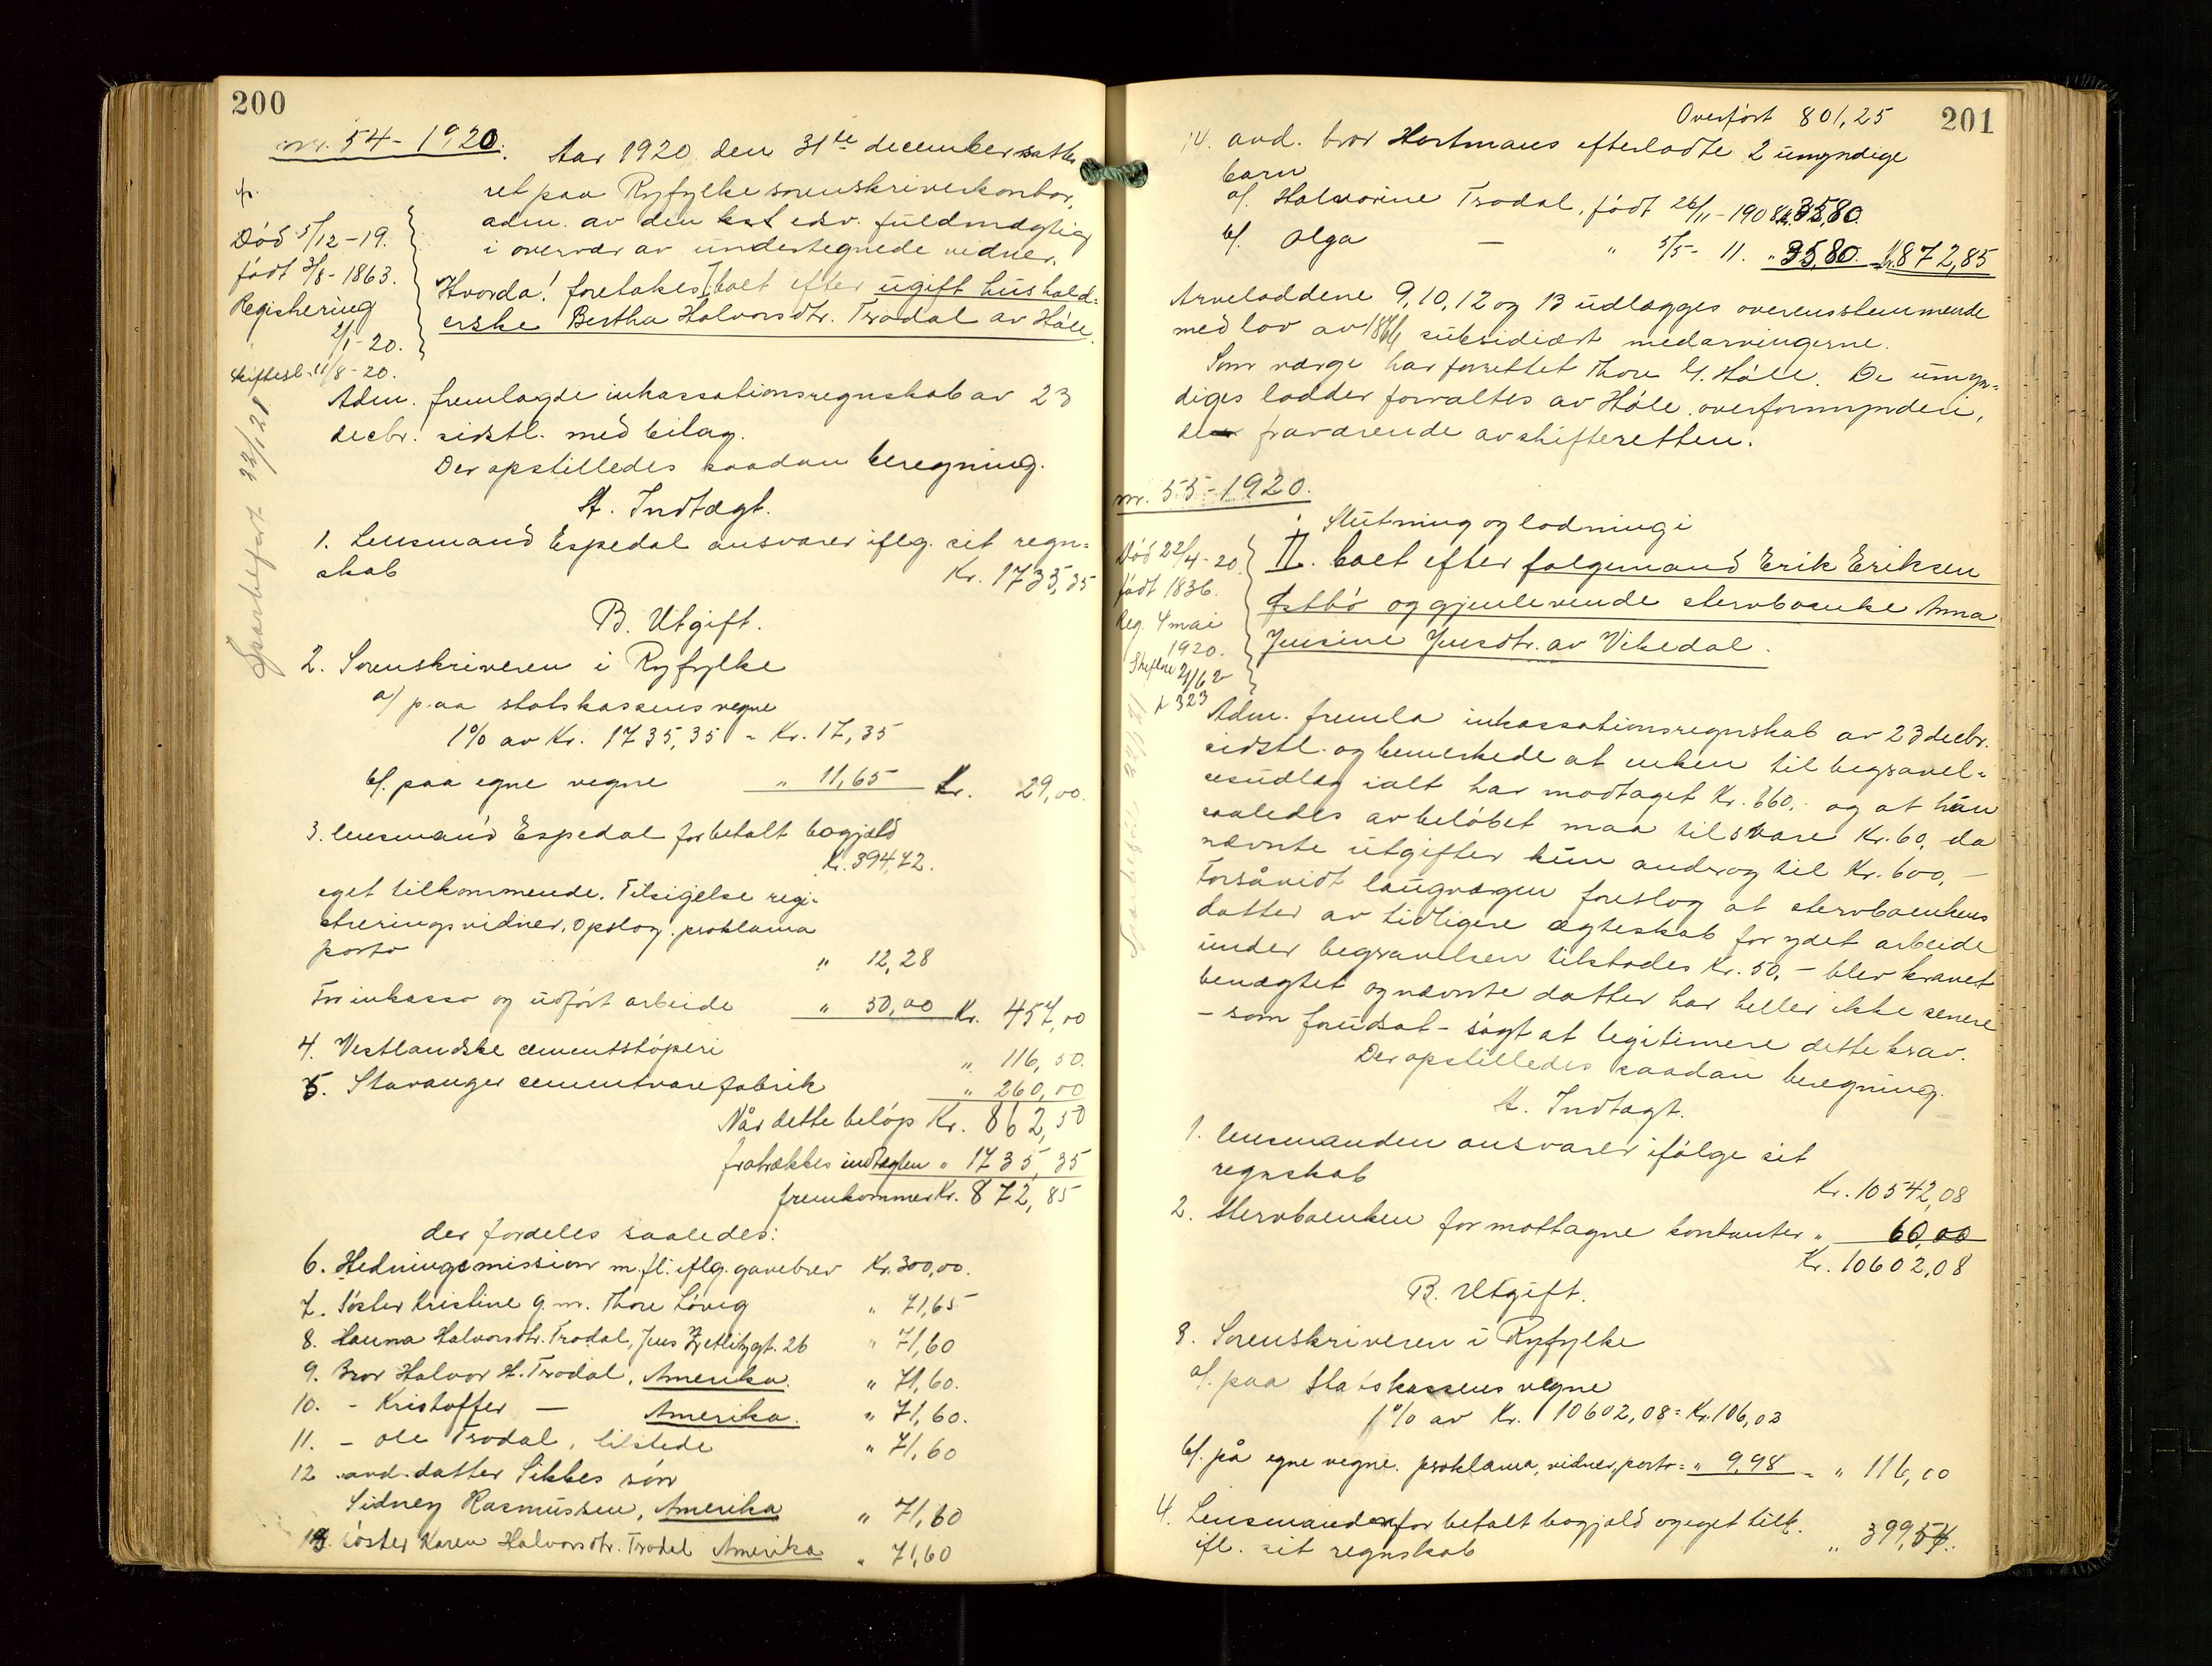 200
nr. 54 - 1920.
Aar 1920 den 31te december sattes
ret paa Ryfylke sorenskriverkontor,
adm. av den kst edsv. fuldmægtig
i overvær av undertegnede vidner.
Hvorda! foretakes I. boet efter ugift hushold-
erske Bertha Halvorsdtr. Trodal av Høle
Død 5/12-19.
født 3/8-1863.
Registrering
2/1-20.
skiftesl. 11/8-20.
Adm. fremlagde inkassationsregnskab av 23
decbr. sidstl. med bilag.
Der opstilledes saadan beregning.
A. Indtægt.
1. Lensmand Espedal ansvarer iflg. sit regn-
skab Kr. 1735,35
B. Utgift.
2. Sorenskriveren i Ryfylke
a/ paa statskassens vegne
1% av Kr. 1735,35 = Kr. 17,35
b/. paa egne vegne " 11,65 Kr. 29,00.
3. lensmand Espedal for betalt bogjæld
Kr. 394,72.
eget tilkommende. Tilsigelse regi-
streringsvidner, opslag, proklama
porto " 12,28
For inkasso og utført arbeide " 50,00 Kr. 457,00
4. Vestlandske cementstøperi " 116,50.
5. Stavanger cementvarefabrik " 260,00
Når dette beløp Kr. 862,50
fratrækkes indtægten " 1735,35
fremkommer Kr. 872,85
der fordeles saaledes:
6. Hedningemission m.fl. iflg. gavebrev Kr. 300,00.
7. Søster Kristine g.m. Thore Løvig " 71,65
8. Hanna Halvorsdtr. Trodal, Jens Zetlitzgt. 26 " 71,60
9. Bror Halvor H. Trodal, Amerika. " 71,60.
10. - Kristoffer — Amerika. " 71,60.
11. - Ole Trodal, tilstede " 71,60
12 avd. datter Sikkes søn
Sidney Rasmussen, Amerika " 71,60
13. søster Karen Halvorsdtr. Trodal Amerika " 71,60
201
Overført 801,25
14. avd. bror Hartmans efterladte 2 umyndige
barn
a/. Halvorine Trodal, født 26/11-1908 kr. 35,80.
b/. Olga — " 5/5- 11. " 35,80. Kr. 872,85
Arveloddene 9, 10, 12 og 13 udlægges overensstemmende
med lov av subsidiært medarvingerne.
Som værge har forrettet Thore G. Høle. De umyn-
diges lodder forvaltes av Høle overformynderi,
de fraværende av skifteretten.
nr. 55 - 1920.
Slutning og lodning i
II. boet efter følgemand Erik Eriksen
Østbø og gjenlevende stervboenke Anna
Jensine Jensdtr. av Vikedal.
Død 22/4-20.
født 1836.
Reg. 4 mai
1920.
Adm. fremla inkassationsregnskab av 23 decbr.
sidstl. og bemerkede at enken til begravel-
sesudlæg ialt har modtaget Kr. 660,- og at hun
saaledes av beløbet maa tilsvare Kr. 60, da
nævnte utgifter kun androg til Kr. 600,-
Forsåvidt laugvægen foreslog at stervboenkens
datter av tidligere ægteskab for ydet arbeide
under begravelsen tilstodes Kr. 50,- blev kravet
benægtet og nævnte datter har heller ikke senere
- som forudsat - søgt at legitimere dette krav.
Der opstilledes saadan beregning.
A. Indtægt.
1. lensmanden ansvarer ifølge sit
regnskab Kr. 10542,08
2. Stervboenken for mottagne kontanter " 60,00
Kr. 10602,08
B. Utgift.
3. Sorenskriveren i Ryfylke
a/. paa Statskassens vegne
1% av Kr. 10602,08 = Kr. 106,02
b/. på egne vegne. proklama, vidner, porto = " 9,98 = " 116,00
4. Lensmanden for betalt bogjæld og eget tilk.
ifl. sit regnskab " 399,54.